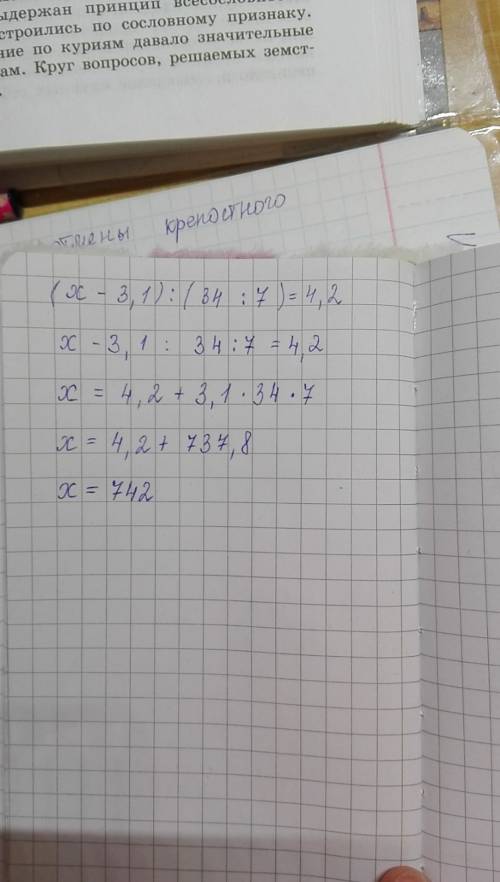 ыдержан принцип
строились по сословному признаку.
ние по куриям давало значительные
ам. Круг вопросов, решаемых земст-
крепостного
(x - 3,1) : (34 : 7) = 4,2
x - 3,1 : 34 : 7 = 4,2
x = 4,2 + 3,1 · 34 · 7
x = 4,2 + 737,8
x = 742